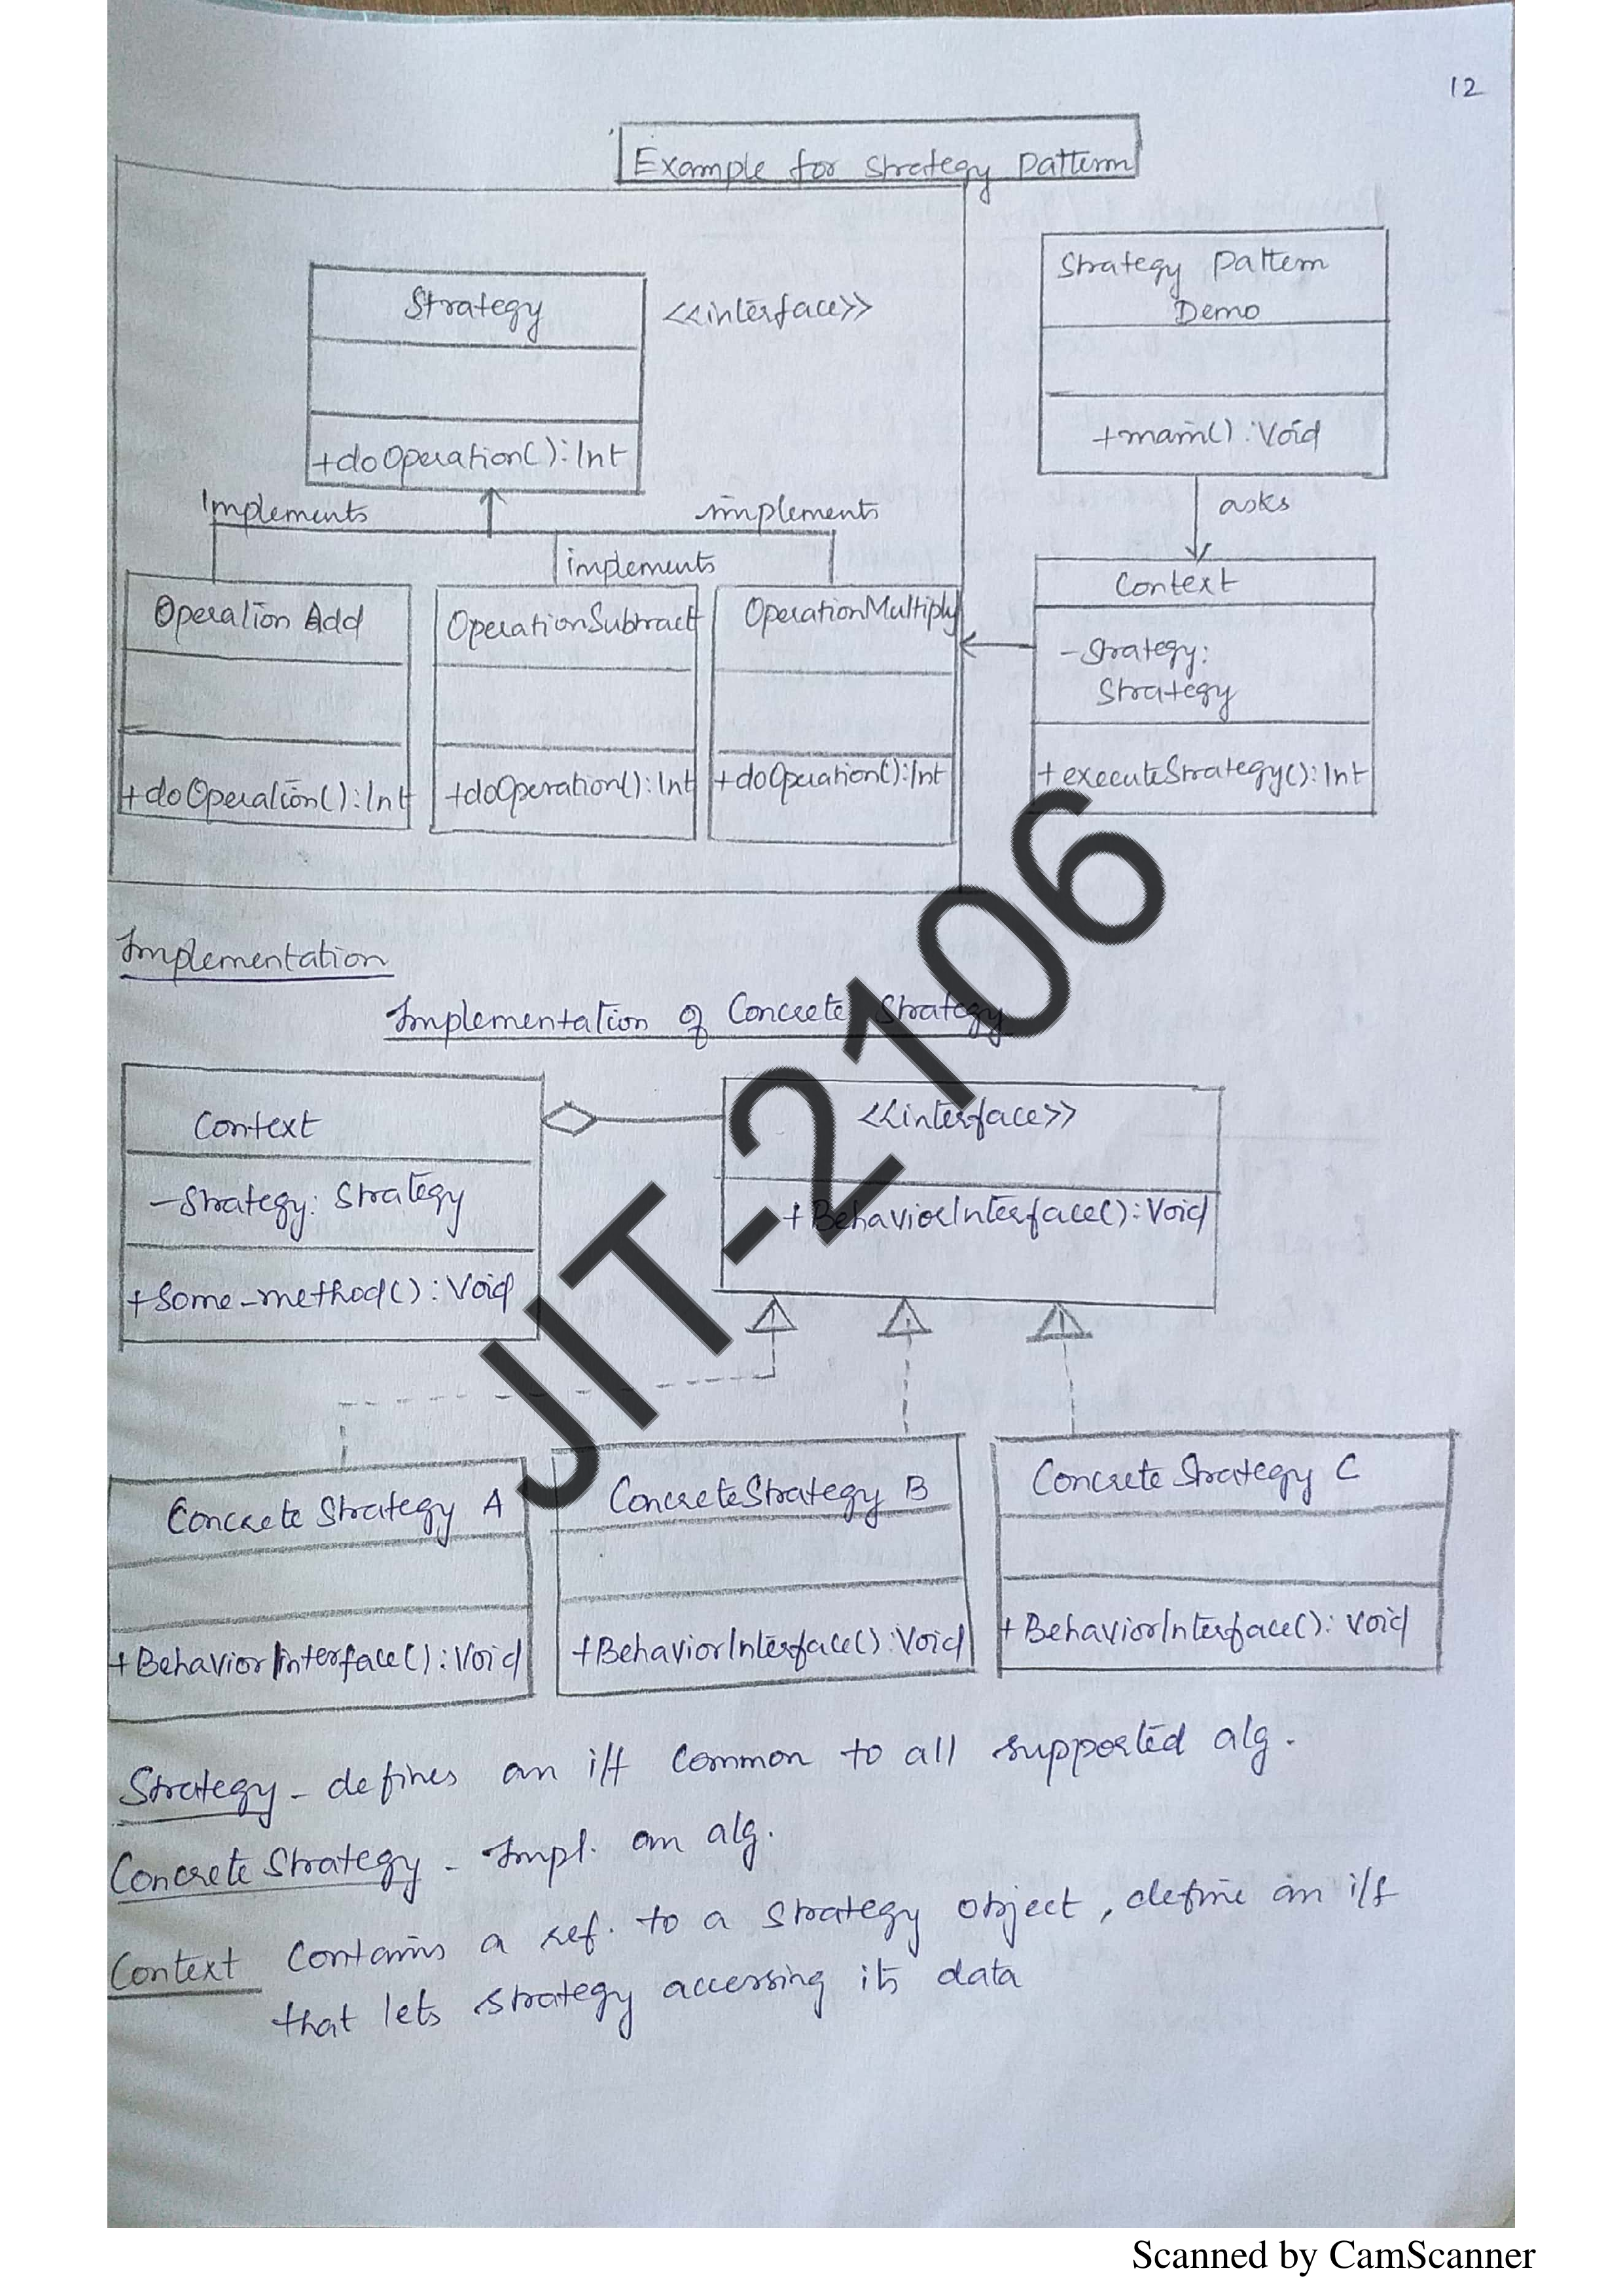 12
Example for Strategy Pattern
Strategy
<<interface>>
+doOperation():Int
Strategy Pattern
Demo
+main():Void
asks
Implements
implements
implements
Operation Add
+doOperation():Int
OperationSubtract
+doOperation():Int
OperationMultiply
+doOperation():Int
Context
-Strategy:
Strategy
+executeStrategy():Int
Implementation
Implementation of Concrete Strategy
Context
-Strategy: Strategy
+Some-method():Void
<<interface>>
+BehaviorInterface():Void
Concrete Strategy A
+BehaviorInterface():Void
ConcreteStrategy B
+BehaviorInterface():Void
Concrete Strategy C
+BehaviorInterface():Void
Strategy - defines an i/f common to all supported alg.
Concrete Strategy - Impl. an alg.
Context Contains a ref. to a strategy object, define an i/f
that lets strategy accessing its data
JIT-2106
Scanned by CamScanner